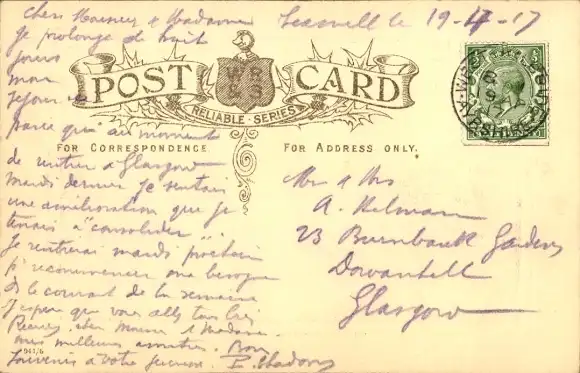 Cher Monsieur & Madame
le 19-4-17
Je prolonge de huit
jours
mon
séjour
parce qu'au moment
de rentrer à Glasgow
mardi dernier je sentais
une amélioration que je
tenais à "consolider"
Je rentrerai mardi prochain
p' recommencer ma besogne
de le courant de la semaine
J'espère que vous allez tous bien
Recevez, cher Monsieur & Madame
mes meilleures amitiés. Bon
Souvenir à votre
POST CARD
W R & S
RELIABLE SERIES
FOR CORRESPONDENCE
FOR ADDRESS ONLY.
Mr & Mrs
A.
23 Burnbank Gardens
Glasgow